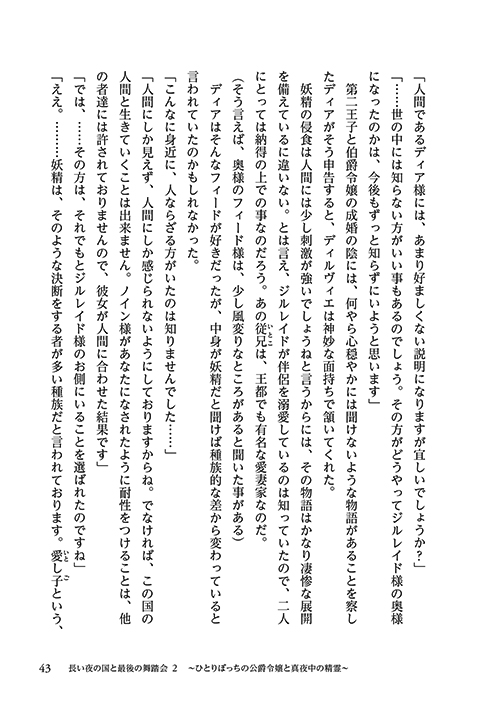 「人間であるディア様には、あまり好ましくない説明になりますが宜しいでしょうか？」
「……世の中には知らない方がいい事もあるのでしょう。その方がどうやってジルレイド様の奥様
になったのかは、今後もずっと知らずにいようと思います」
第二王子と伯爵令嬢の成婚の陰には、何やら心穏やかには聞けないような物語があることを察し
たディアがそう申告すると、ディルヴィエは神妙な面持ちで頷いてくれた。
妖精の侵食は人間には少し刺激が強いでしょうねと言うからには、その物語はかなり凄惨な展開
を備えているに違いない。とは言え、ジルレイドが伴侶を溺愛しているのは知っていたので、二人
にとっては納得の上での事なのだろう。あの従兄は、王都でも有名な愛妻家なのだ。
いとこ
（そう言えば、奥様のフィード様は、少し風変りなところがあると聞いた事がある）
ディアはそんなフィードが好きだったが、中身が妖精だと聞けば種族的な差から変わっていると
言われていたのかもしれなかった。
「こんなに身近に、人ならざる方がいたのは知りませんでした……」
「人間にしか見えず、人間にしか感じられないようにしておりますからね。でなければ、この国の
人間と生きていくことは出来ません。ノイン様があなたになされたように耐性をつけることは、他
の者達には許されておりませんので、彼女が人間に合わせた結果です」
「では、……その方は、それでもとジルレイド様のお側にいることを選ばれたのですね」
「ええ。………妖精は、そのような決断をする者が多い種族だと言われております。愛し子という、
いと ご
43 長い夜の国と最後の舞踏会 2 ～ひとりぼっちの公爵令嬢と真夜中の精霊～